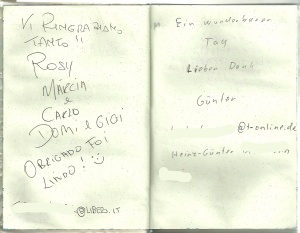 VI RINGRAZIAMO
TANTO!!
ROSY
MARCIA
e
CARLO
DOMI e GIGI
OBRIGADO FOI
LINDO!
@LIBERO.IT
Ein wunderbarer
Tag
Lieben Dank
Günter
@t-online.de
Heinz-Günter